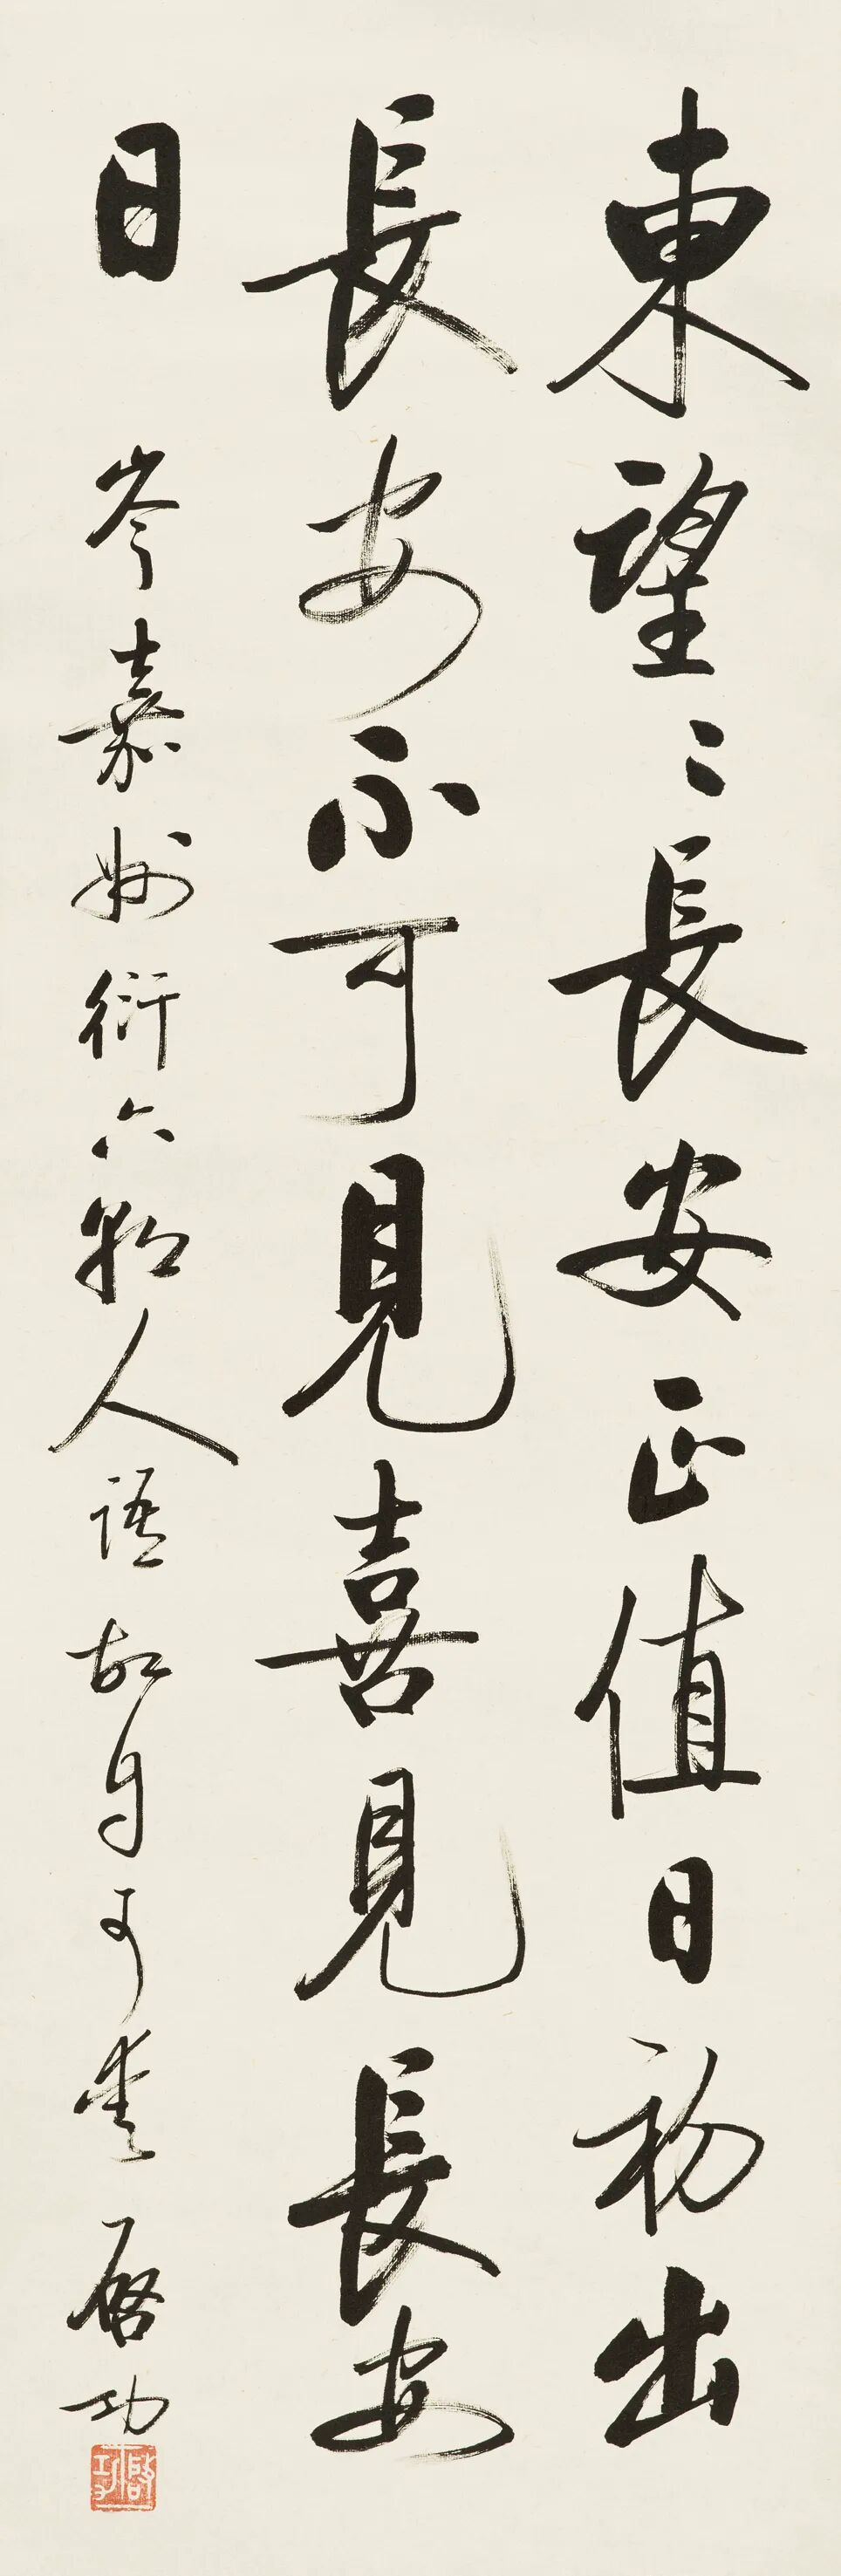 東望〻長安正值日初出
長安不可見喜見長安
日 岑嘉州衍六朝人語故自可愛 啓功
啟功